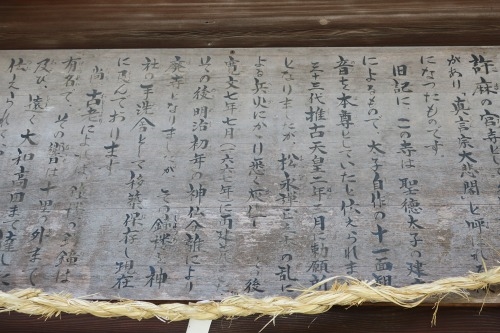 許麻の宮寺とし
があり真言宗大悲閣と呼ばれ
になつたものです
旧記に この寺は聖徳太子の建立
によるもの 太子自作の十一面観
音を本尊としていたと伝えられま
三十三代推古天皇二年二月に勅願
となりましたが 松永弾正久秀の乱に
よる兵火にかゝり 後
寛文七年七月(一六六七年)に再建され
その後明治初年の神仏分離により
廃寺となりましたが その鐘楼を神
社の手洗舎として移築保存し現在
に及んでおります
尚 古老によ 釣鐘は
有名で その響は十里の外まで
及び 遠く大和高田まで達した
伝えられて